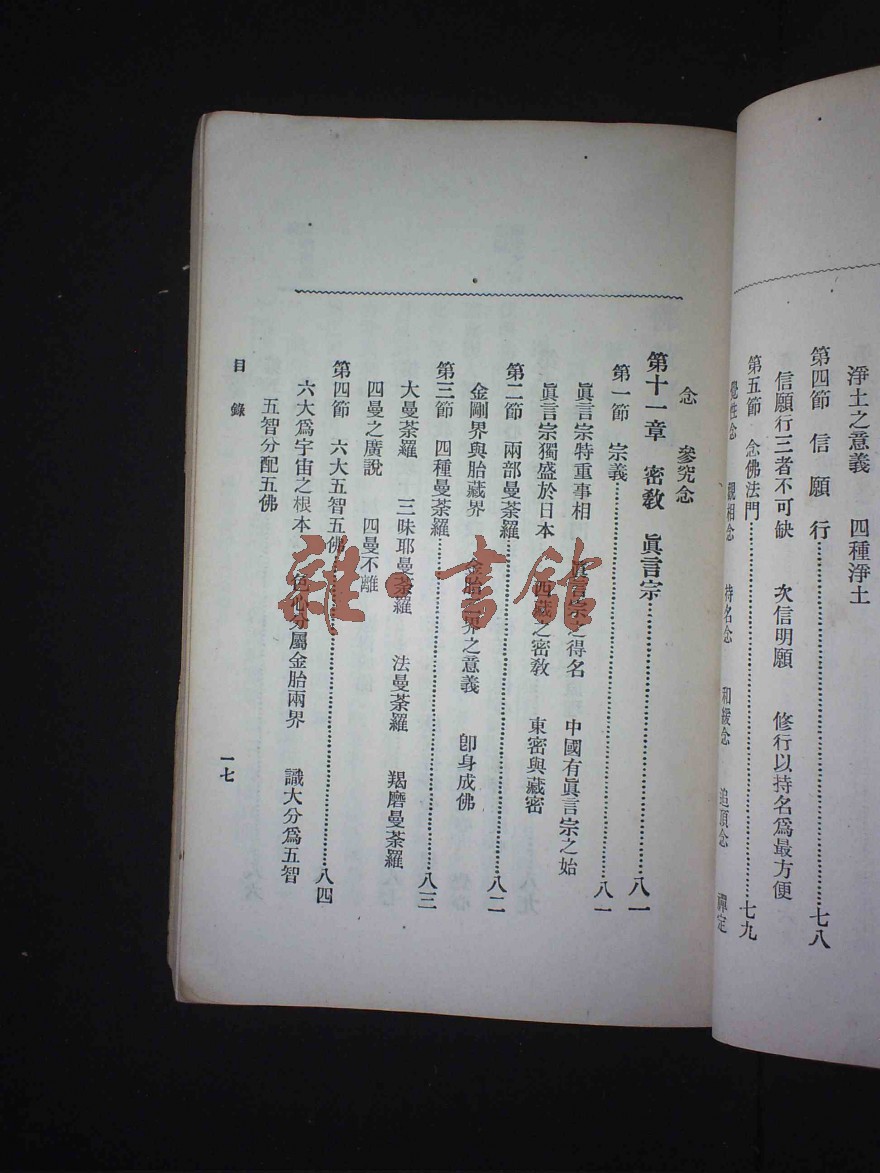 淨土之意義　四種淨土
第四節　信　願　行……七八
信願行三者不可缺　次信明願　修行以持名爲最方便
第五節　念佛法門……七九
覺性念　觀相念　持名念　和緩念　追頂念　禪定
念　參究念
第十一章　密敎　眞言宗……八一
第一節　宗義……八一
眞言宗特重事相　眞言宗之得名　中國有眞言宗之始
眞言宗獨盛於日本　西藏之密敎　東密與藏密
第二節　兩部曼荼羅……八二
金剛界與胎藏界　金胎二界之意義　卽身成佛
第三節　四種曼荼羅……八三
大曼荼羅　三昧耶曼荼羅　法曼荼羅　羯磨曼荼羅
四曼之廣說　四曼不離
第四節　六大五智五佛……八四
六大爲宇宙之根本　色心分屬金胎兩界　識大分爲五智
五智分配五佛
目錄
一七
雜·書館